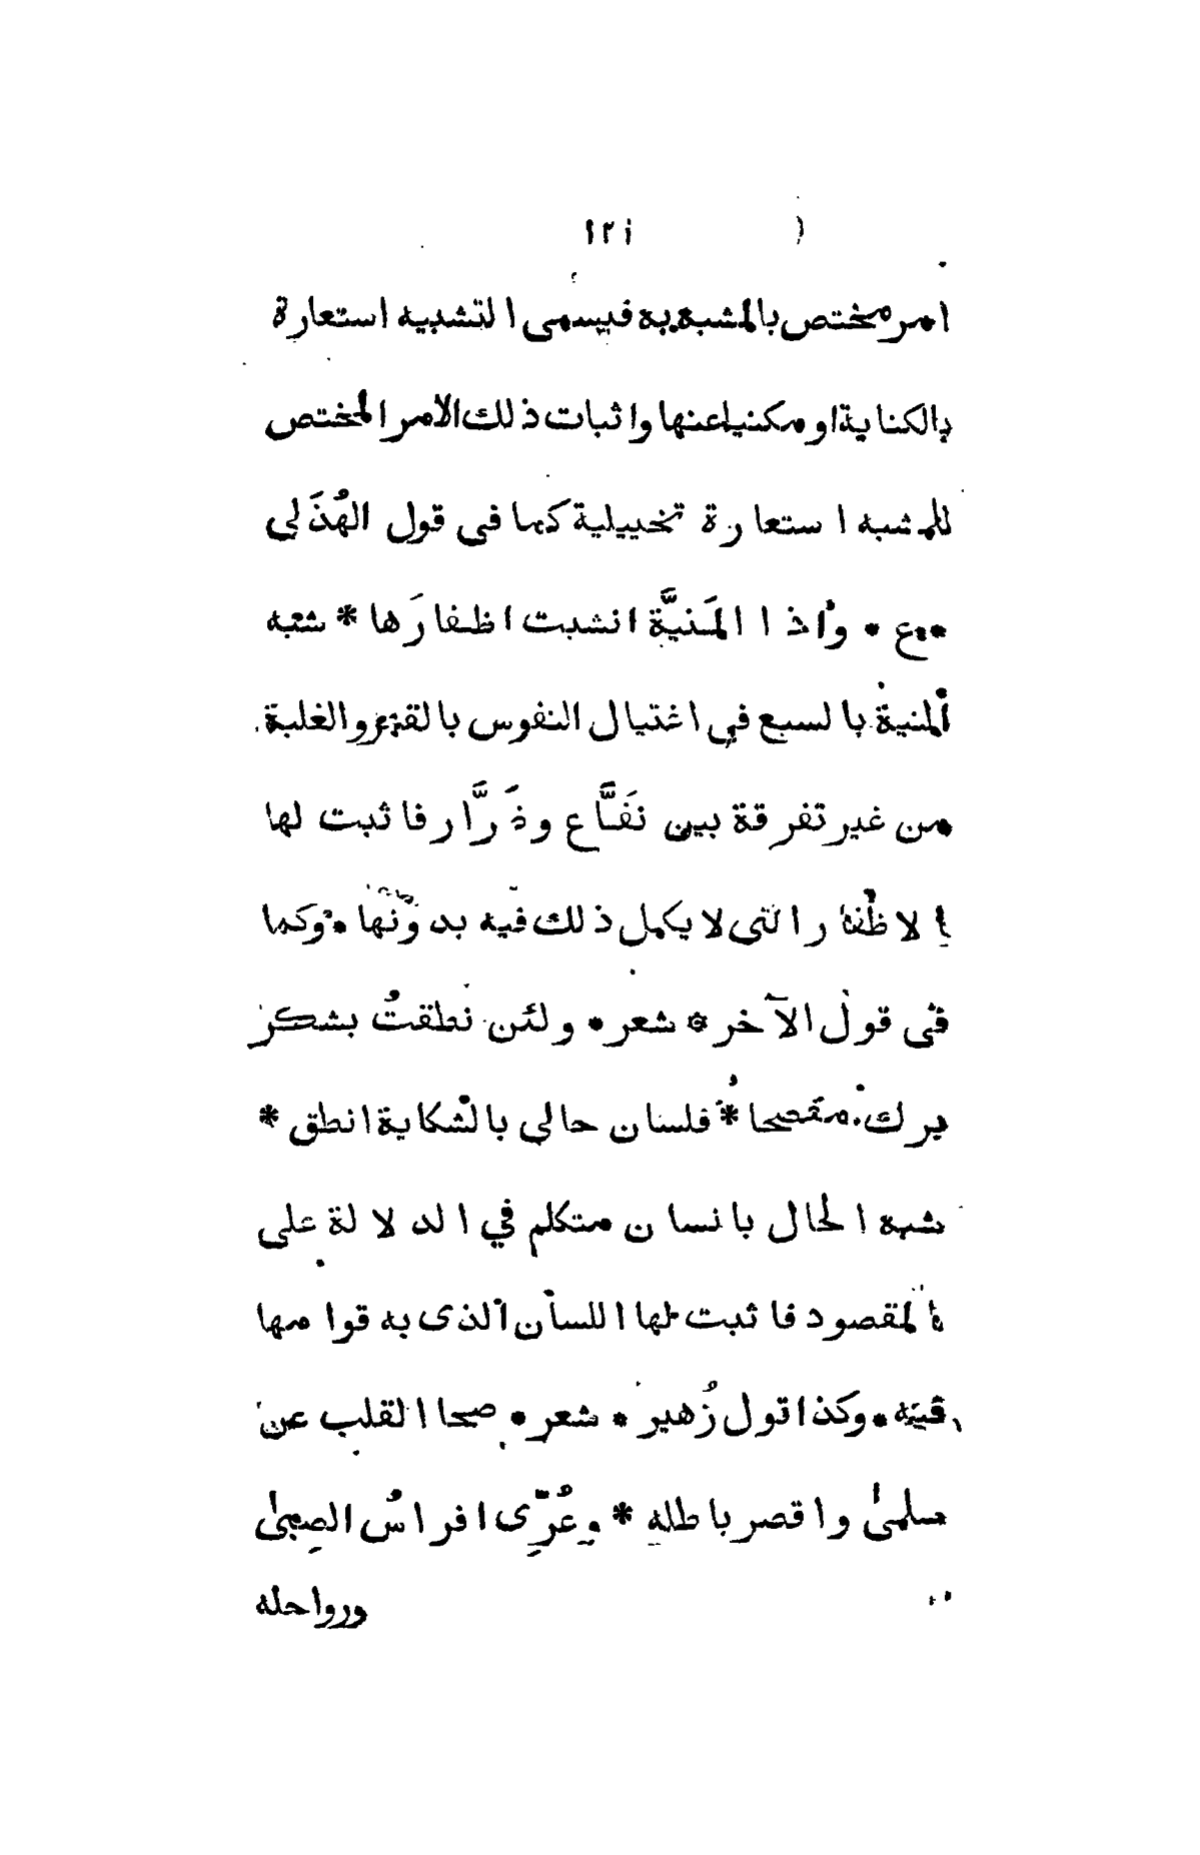 ١٢١
امر مختص بالمشبه به فيسمى التشبيه استعارة
بالكناية او مكنيا عنها واثبات ذلك الامر المختص
للمشبه استعارة تخييلية كما فى قول الهُذَلى
*ع* واذا المَنيَّة انشبت اظفارَها * شبه
المنية بالسبع في اغتيال النفوس بالقهر والغلبة
من غير تفرقة بين نَفَّاع وضَرَّار فاثبت لها
الاظفار التى لا يكمل ذلك فيه بدونها * وكما
فى قول الآخر * شعر * ولئن نطقتُ بشكر
برك مفصحا * فلسان حالى بالشكاية انطق *
شبه الحال بانسان متكلم في الدلالة على
المقصود فاثبت لها اللسان الذى به قوامها
فيه * وكذا قول زُهير * شعر * صحا القلب عن
سلمىٰ واقصر باطله * وعُرِّى افراسُ الصِبىٰ
ورواحله